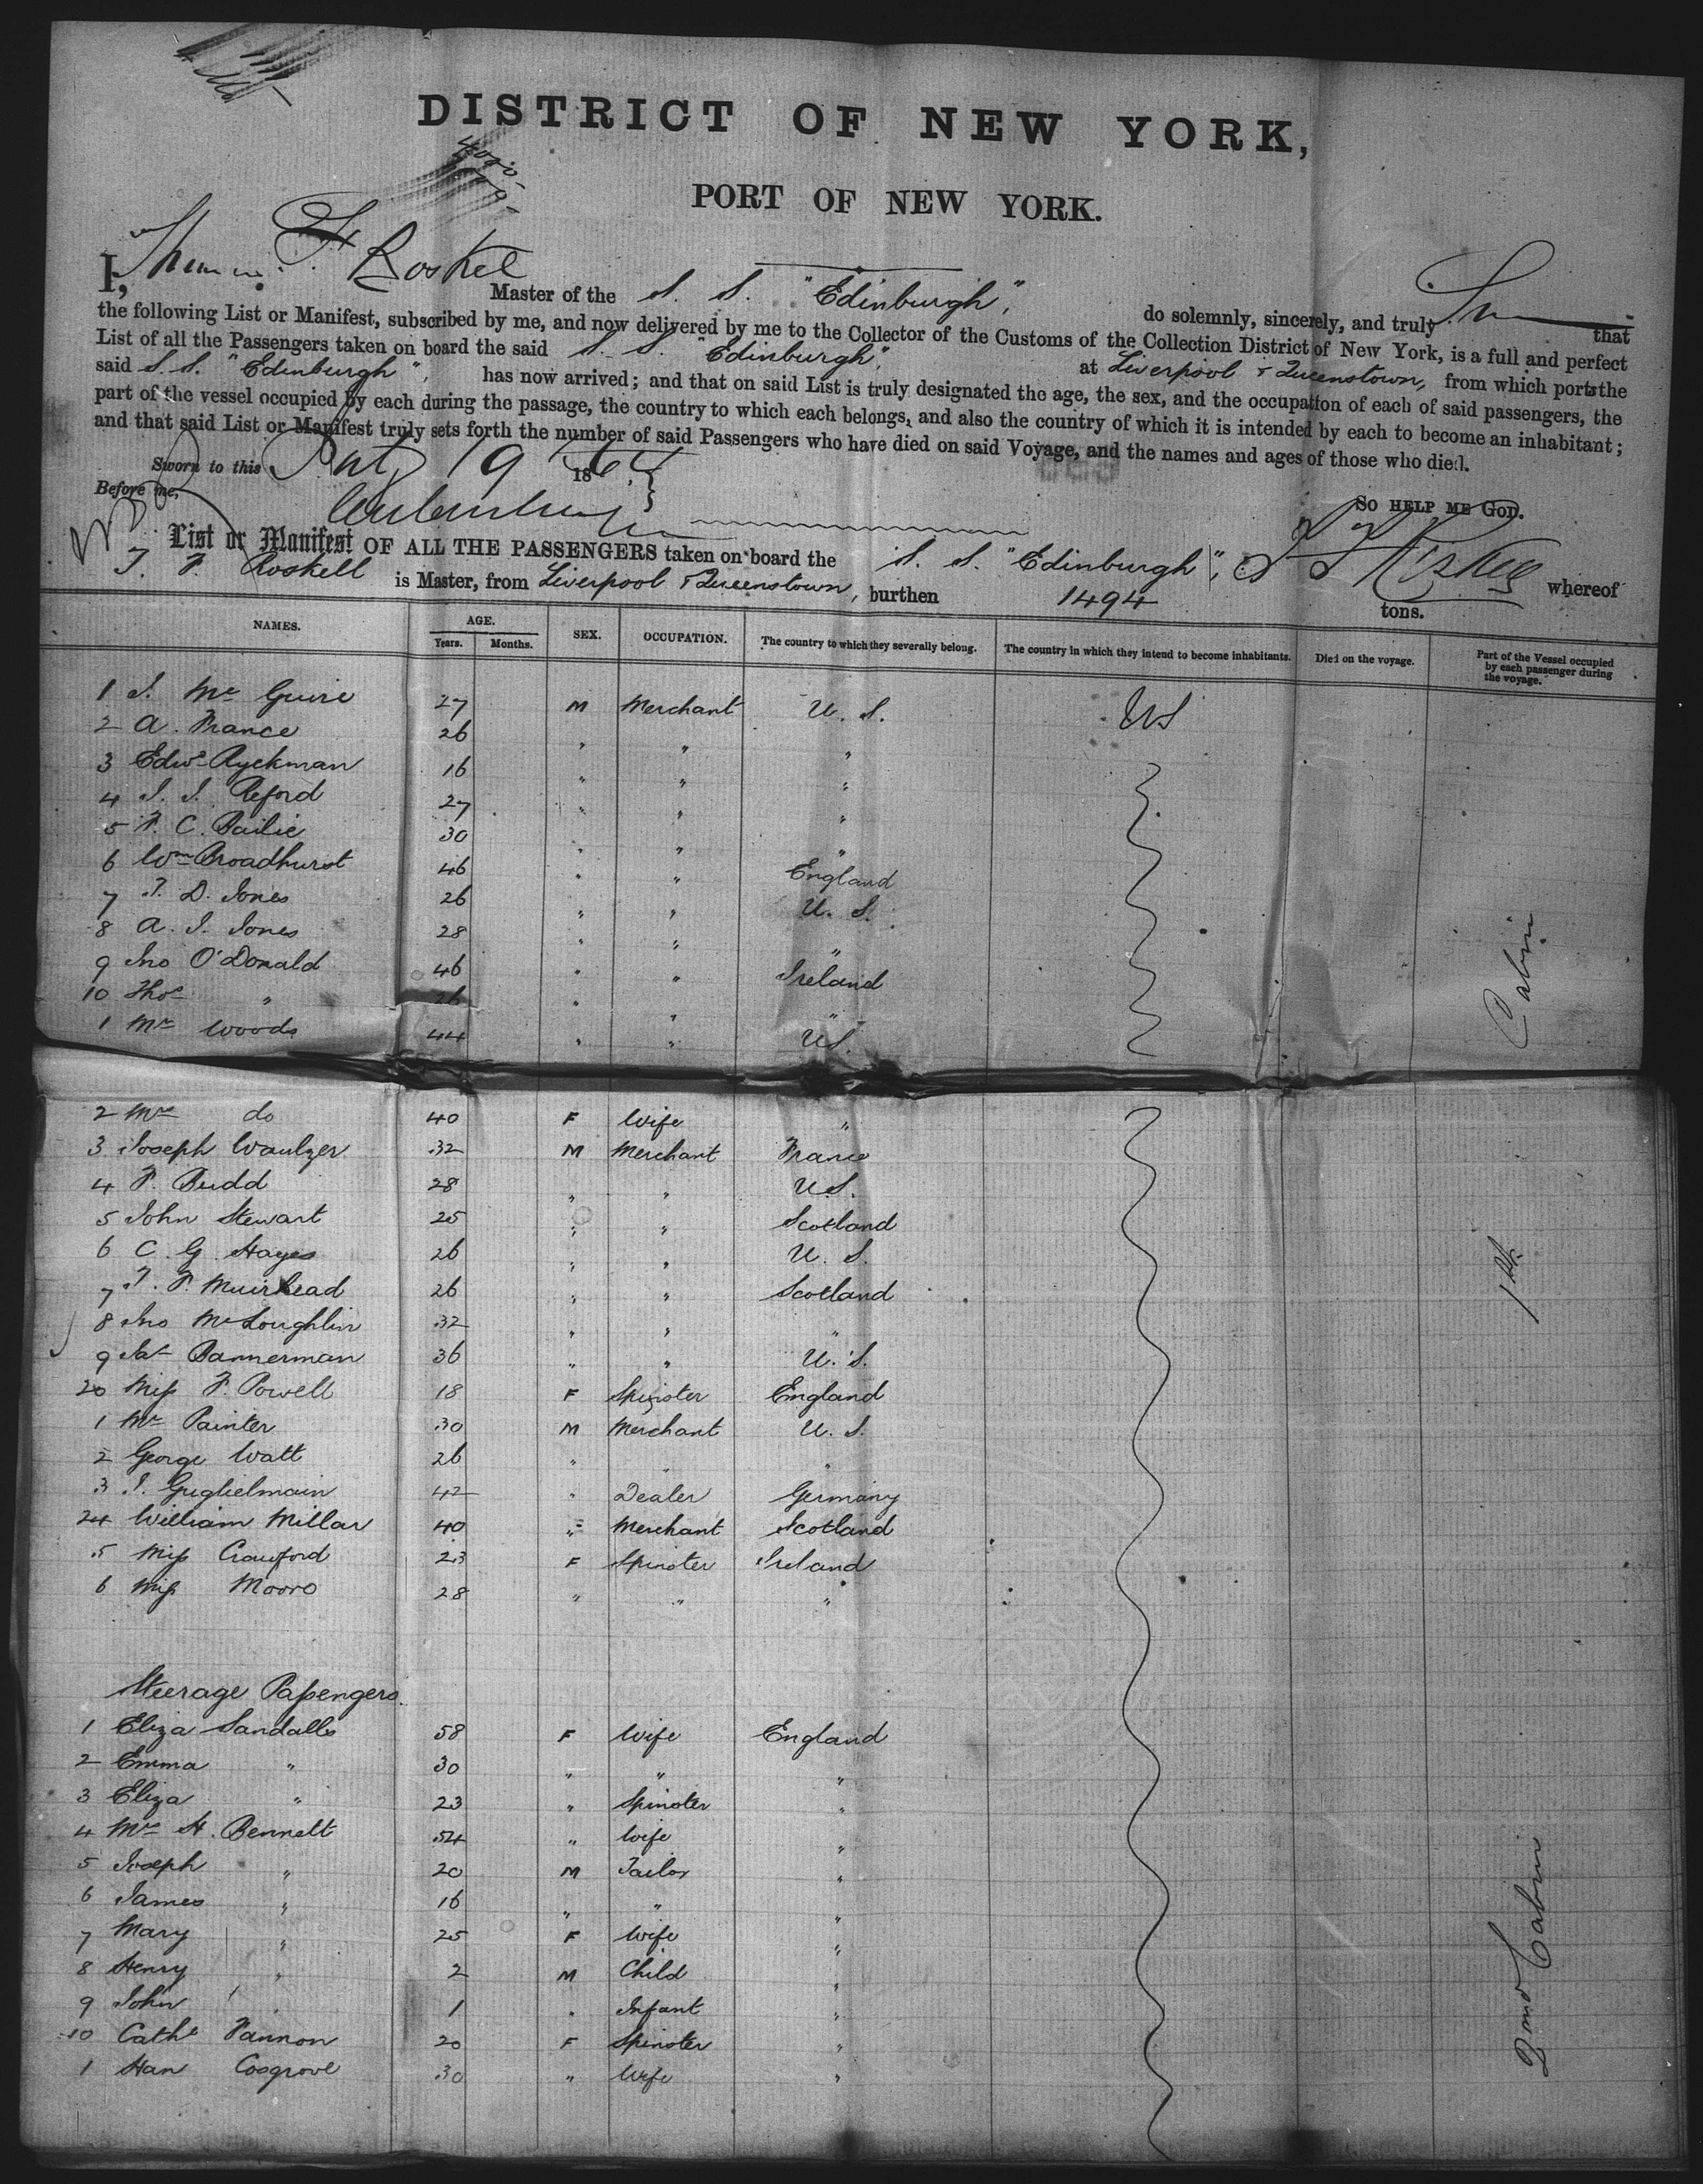 DISTRICT OF NEW YORK,
PORT OF NEW YORK.
I, F Roskell Master of the S. S. "Edinburgh", do solemnly, sincerely, and truly that
the following List or Manifest, subscribed by me, and now delivered by me to the Collector of the Customs of the Collection District of New York, is a full and perfect
List of all the Passengers taken on board the said S. S. "Edinburgh", at Liverpool & Queenstown, from which ports the
said S. S. "Edinburgh", has now arrived; and that on said List is truly designated the age, the sex, and the occupation of each of said passengers, the
part of the vessel occupied by each during the passage, the country to which each belongs, and also the country of which it is intended by each to become an inhabitant;
and that said List or Manifest truly sets forth the number of said Passengers who have died on said Voyage, and the names and ages of those who died.
Sworn to this 19 1864 So HELP ME GOD.
Before me,
List or Manifest OF ALL THE PASSENGERS taken on board the S. S. "Edinburgh", whereof
T. F. Roskell is Master, from Liverpool & Queenstown, burthen 1494 tons.
NAMES. AGE. Years. Months. SEX. OCCUPATION. The country to which they severally belong. The country in which they intend to become inhabitants. Died on the voyage. Part of the Vessel occupied by each passenger during the voyage.
1 J. Mc Guire 27 M Merchant U. S. US
2 A. France 26 " " "
3 Edwd Ryckman 16 " " "
4 J. J. Reford 27 " " "
5 F. C. Bailie 30 " " "
6 Wm Broadhurst 46 " " England
7 T. D. Jones 26 " " U. S.
8 A. J. Jones 28 " " "
9 Jno O'Donald 46 " " Ireland
10 Thos " 26 " " "
1 Mr Woods 44 " " US.
Cabin
2 Mrs do 40 F Wife "
3 Joseph Waulzer 32 M Merchant France
4 F. Budd 28 " " U.S.
5 John Stewart 25 " " Scotland
6 C. G. Hayes 26 " " U. S.
7 T. F. Muirhead 26 " " Scotland
8 Jno McLoughlin 32 " " "
9 Jas Bannerman 36 " " U. S.
20 Miss F. Powell 18 F Spinster England
1 Mr Painter 30 M Merchant U. S.
2 George Watt 26 " " "
3 J. Guglielmain 42 " Dealer Germany
24 William Millar 40 " Merchant Scotland
5 Miss Crawford 23 F Spinster Ireland
6 Miss Moore 28 " " "
1st
Steerage Passengers.
1 Eliza Sandalls 58 F Wife England
2 Emma " 30 " " "
3 Eliza " 23 " Spinster "
4 Mrs H. Bennett 54 " Wife "
5 Joseph " 20 M Tailor "
6 James " 16 " " "
7 Mary " 25 F Wife "
8 Henry " 2 M Child "
9 John " 1 " Infant "
10 Cathe Fannon 20 F Spinster "
1 Han Cosgrove 30 " Wife "
2nd Cabin